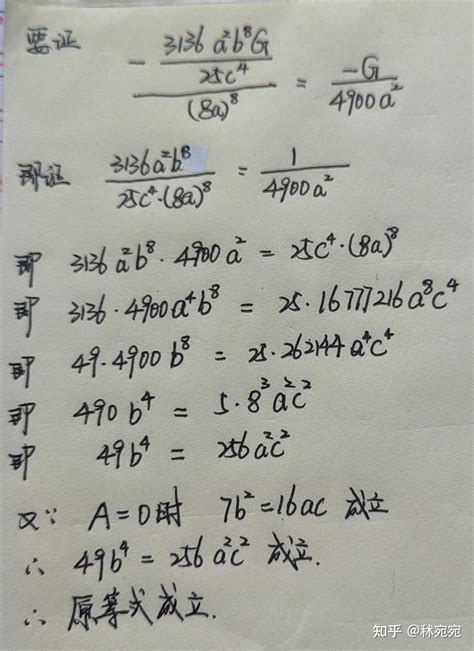 要证 - (3136 a²b⁸G / 25c⁴) / (8a)⁸ = -G / 4900a²
即证 3136a²b⁸ / 25c⁴·(8a)⁸ = 1 / 4900a²
即 3136a²b⁸·4900a² = 25c⁴·(8a)⁸
即 3136·4900a⁴b⁸ = 25·16777216a⁸c⁴
即 49·4900b⁸ = 25·262144a⁴c⁴
即 490b⁴ = 5·8³a²c²
即 49b⁴ = 256a²c²
又∵ A=0时 7b²=16ac 成立
∴ 49b⁴ = 256a²c² 成立.
∴ 原等式成立.
知乎 @秝宛宛